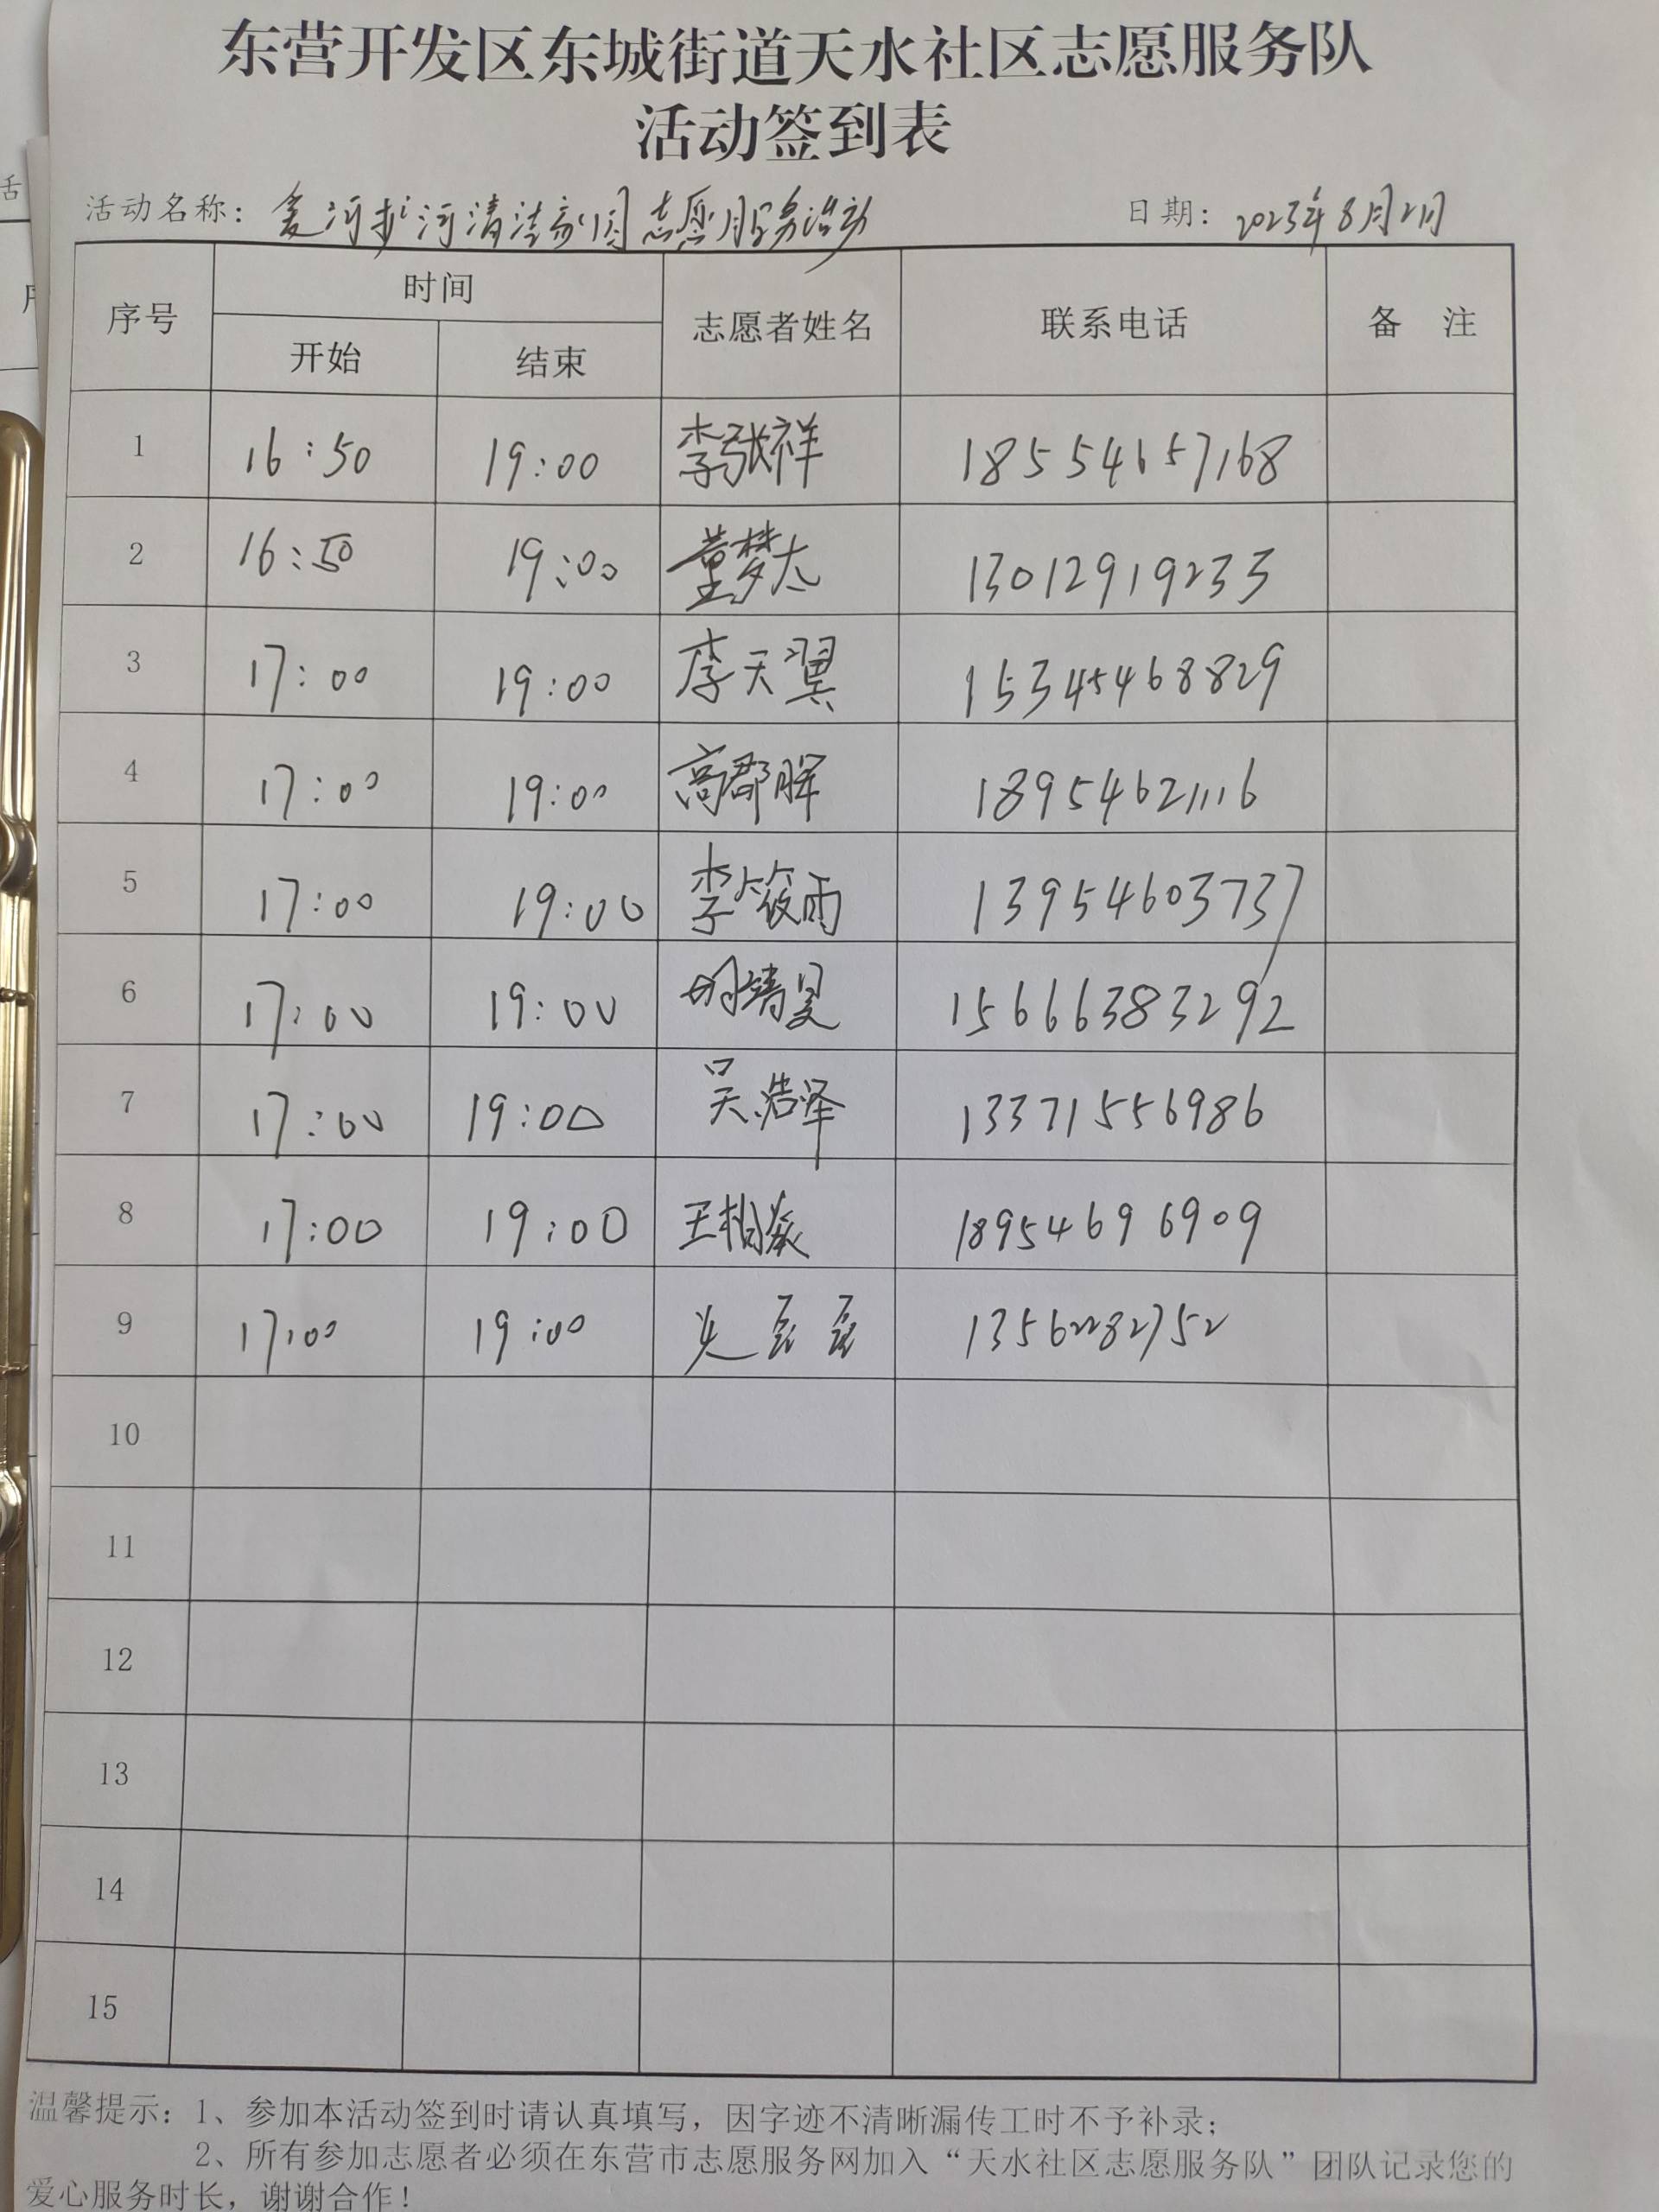 东营开发区东城街道天水社区志愿服务队
活动签到表
活动名称：爱河护河清洁家园志愿服务活动 日期：2023年8月21日
序号 时间 志愿者姓名 联系电话 备 注
开始 结束
1 16:50 19:00 李张祥 18554657168
2 16:50 19:00 董梦太 13012919233
3 17:00 19:00 李天翼 15345468829
4 17:00 19:00 高郡晖 18954621116
5 17:00 19:00 李筱雨 13954603737
6 17:00 19:00 胡靖昊 15666383292
7 17:00 19:00 吴浩泽 13371556986
8 17:00 19:00 王柏焱 18954696909
9 17:00 19:00 磊磊 13562282752
10
11
12
13
14
15
温馨提示：1、参加本活动签到时请认真填写，因字迹不清晰漏传工时不予补录；
2、所有参加志愿者必须在东营市志愿服务网加入“天水社区志愿服务队”团队记录您的
爱心服务时长，谢谢合作！